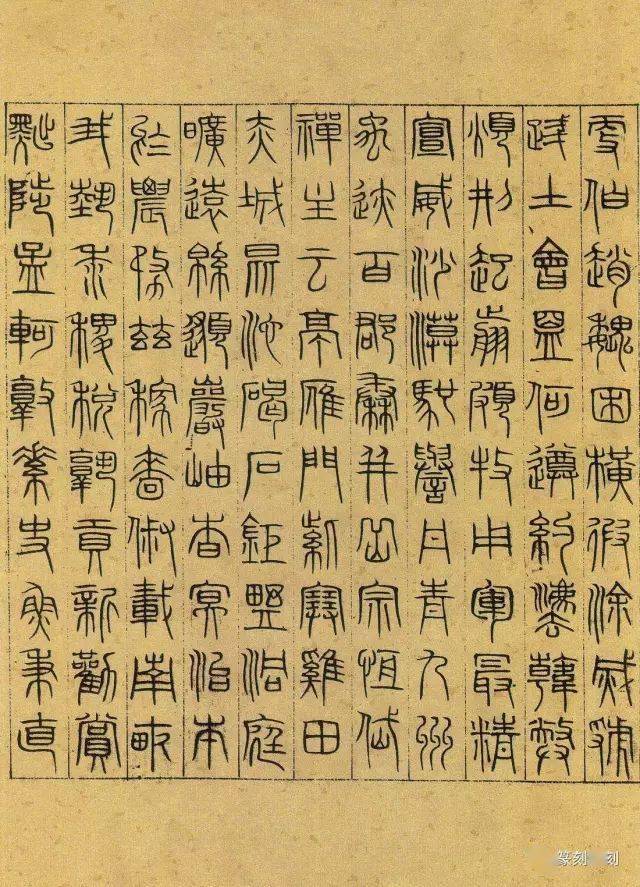 更伯趙魏困橫假涂滅虢
踐土會盟何遵約灋韓弊
煩刑起翦頗牧用軍最精
宣威沙漠馳譽丹青九州
禹迹百郡秦并嶽宗恆岱
禪主云亭雁門紫塞雞田
赤城昆池碣石鉅野洞庭
曠遠緜邈巖岫杳冥治本
於農務茲稼穡俶載南畝
我藝黍稷稅孰貢新勸賞
黜陟孟軻敦素史魚秉直
篆刻 刻